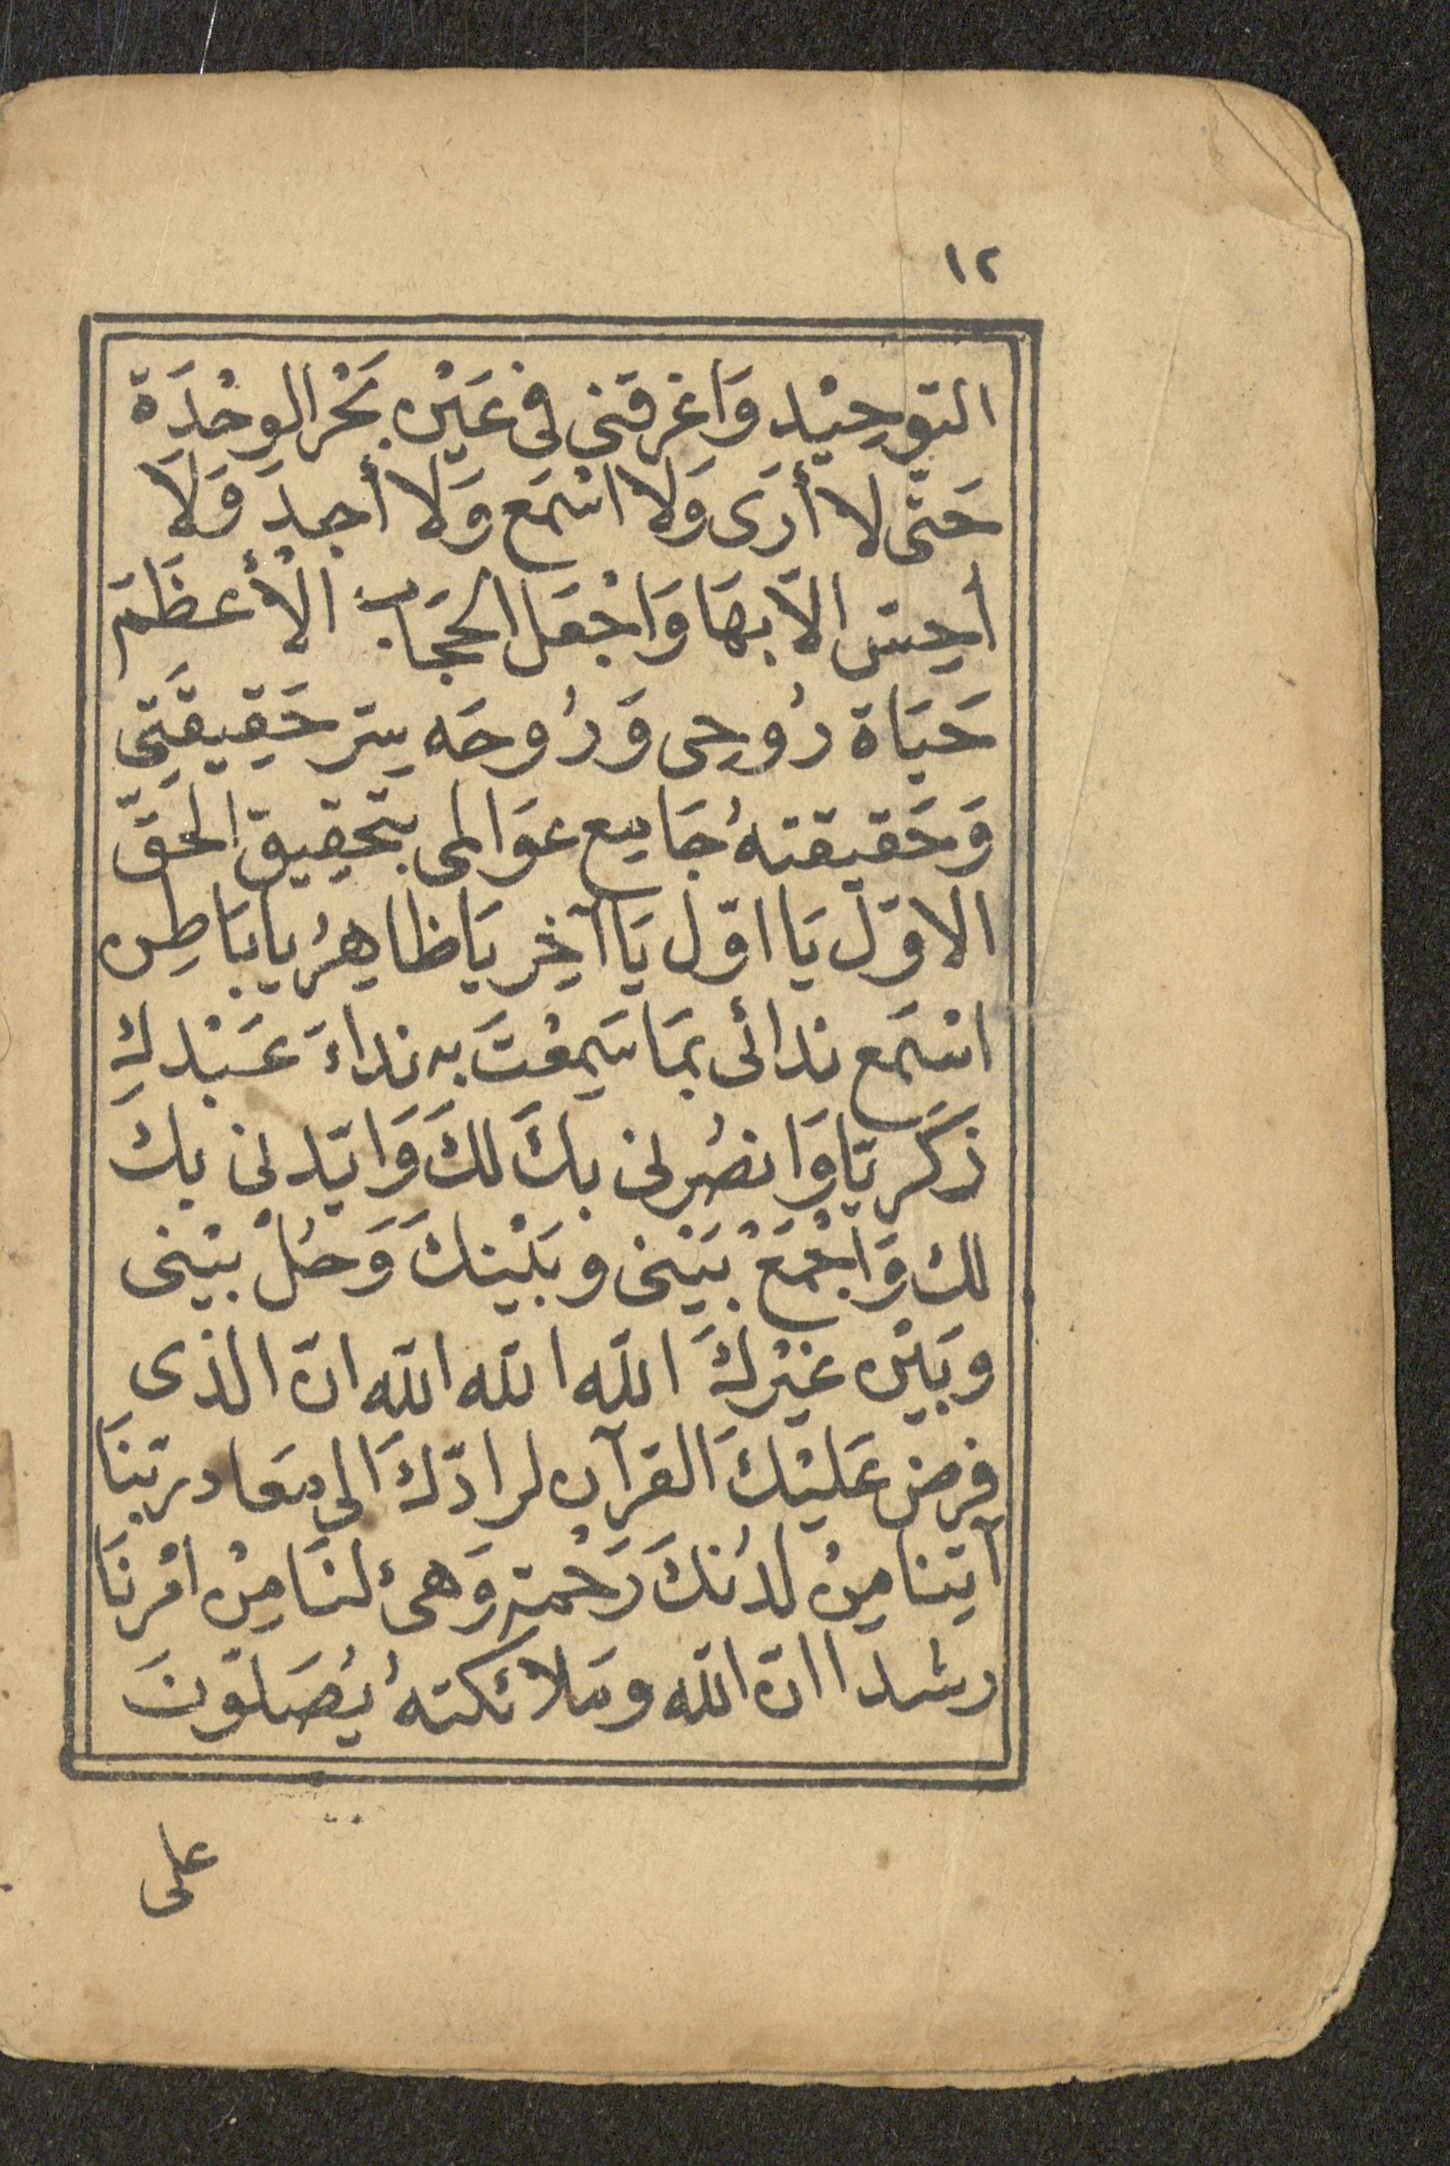 ١٢
التوحِيْدِ وَاغرقنى فى عَيْن بَحْر الوحْدَة
حَتى لا أرَى وَلا اسْمَع وَلا أجِدَ وَلَا
أحِسّ الاّ بهَا وَاجْعَل الحجَابَ الْأعظَمَ
حَيَاة رُوحِى وَرُوحَه سِرّ حَقِيقَتِى
وَحَقيقتهُ جَامِع عوَالمى بتحقِيق الحَقّ
الاوّل يَا اوّل يَا آخِر يَا ظاهِرُ يا بَاطِن
اسْمَع ندائى بمَا سَمِعْتَ به نداءَ عَبْدكَ
زَكَريّا وَانصُرنى بكَ لكَ وَايّدنى بكَ
لك وَاجْمَعْ بَيْنى وبَيْنكَ وَحُلْ بيْنى
وبَيْن غيْركَ الله الله الله انّ الذى
فرضَ عَليْكَ القرآن لرادّكَ الى مَعاد ربّنَا
آتِنا مِنْ لدُنكَ رَحْمة وَهيّئ لنَا مِنْ امْرنَا
رشدا انّ الله وملَائكتهُ يُصَلّونَ
على